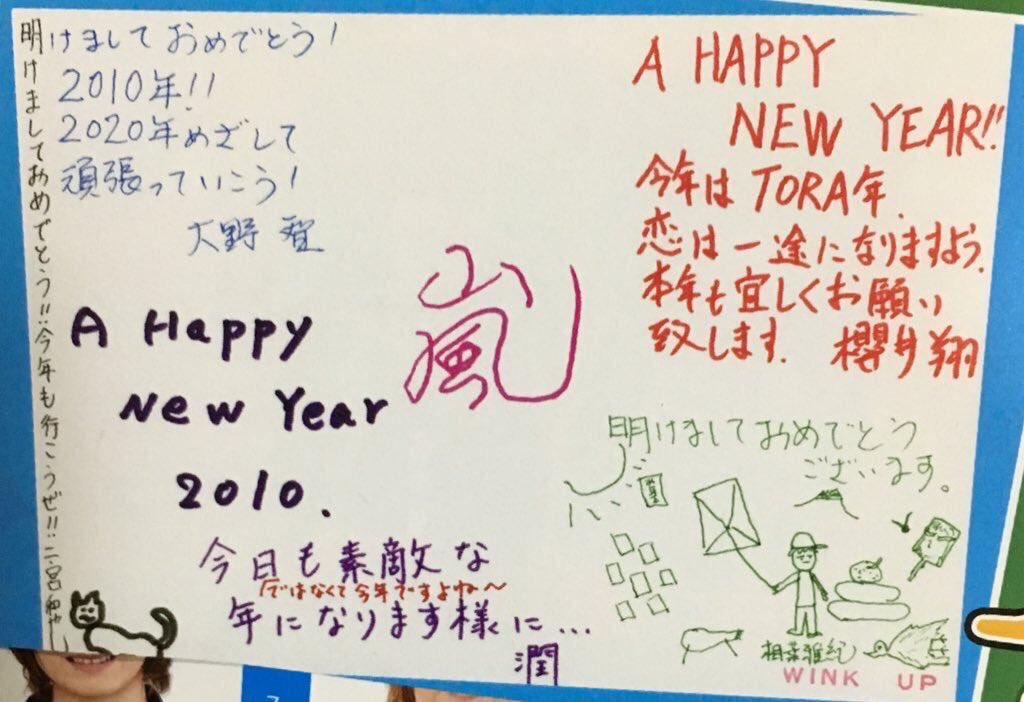 明けましておめでとう!! 今年も行こうぜ!! 二宮和也
明けまして おめでとう!
2010年!!
2020年めざして
頑張っていこう!
大野 智
A HAPPY
NEW YEAR!!
今年は TORA年.
恋は一途になりますよう.
本年も宜しくお願い
致します. 櫻井翔
嵐
A Happy
New Year
2010.
今日も素敵な
今日ではなくて今年ですよね〜
年になります様に...
潤
明けましておめでとう
ございます。
相葉雅紀
WINK UP